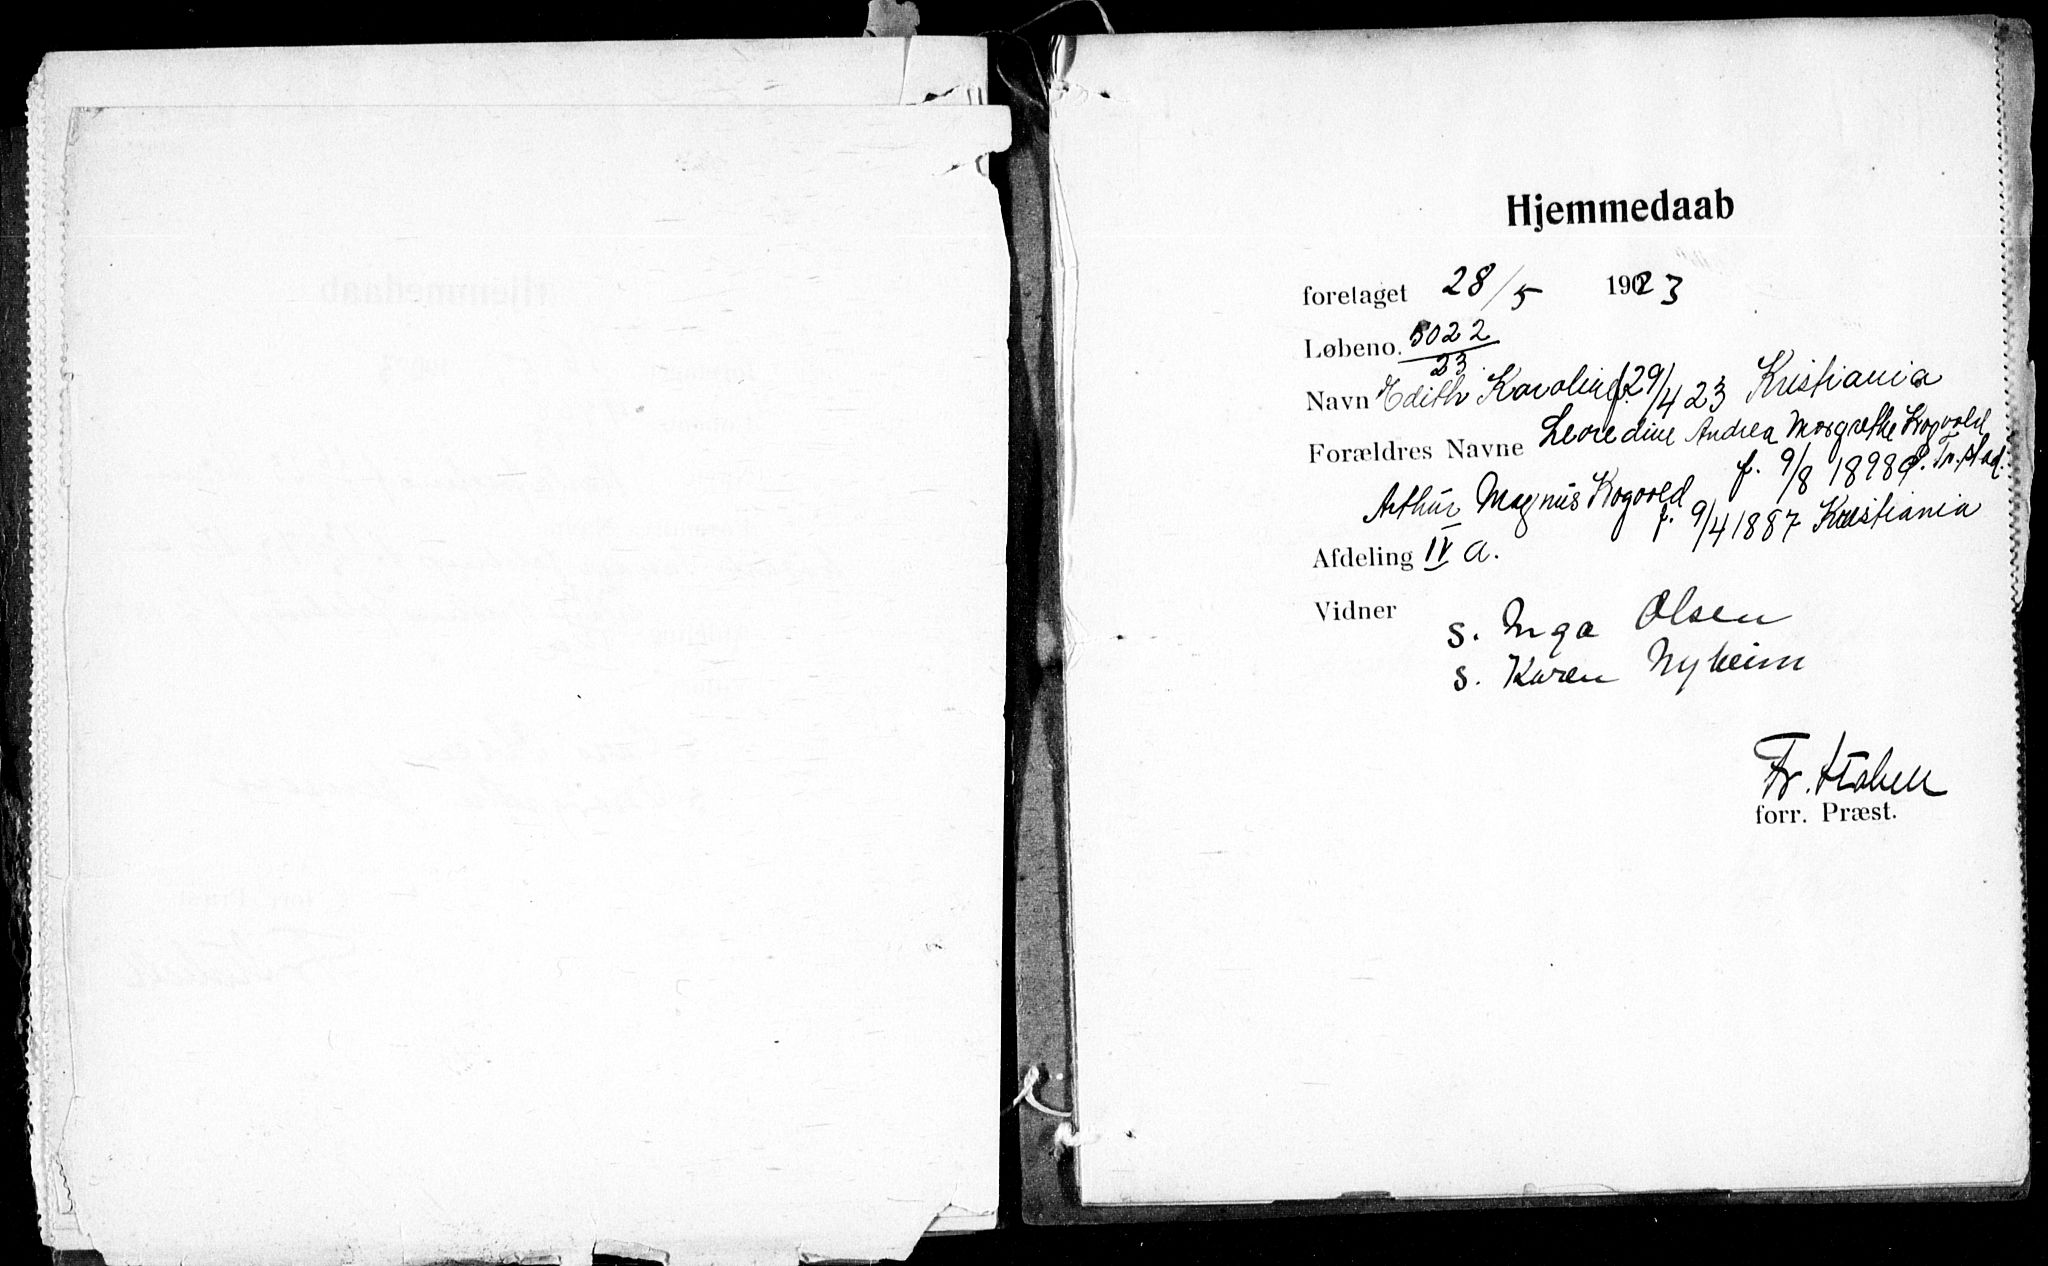 Hjemmedaab
foretaget 28/5 1923
Løbeno. 5022/23
Navn Edith Karoline f. 29/4 23 Kristiania
Forældres Navne Leonedine Andrea Margrethe Krogvold
f. 9/8 1898 Fr.stad.
Arthur Magnus Krogvold
f. 9/4 1887 Kristiania
Afdeling IV a.
Vidner
s. Inga Olsen
s. Karen Nyheim
Fr.
forr. Præst.